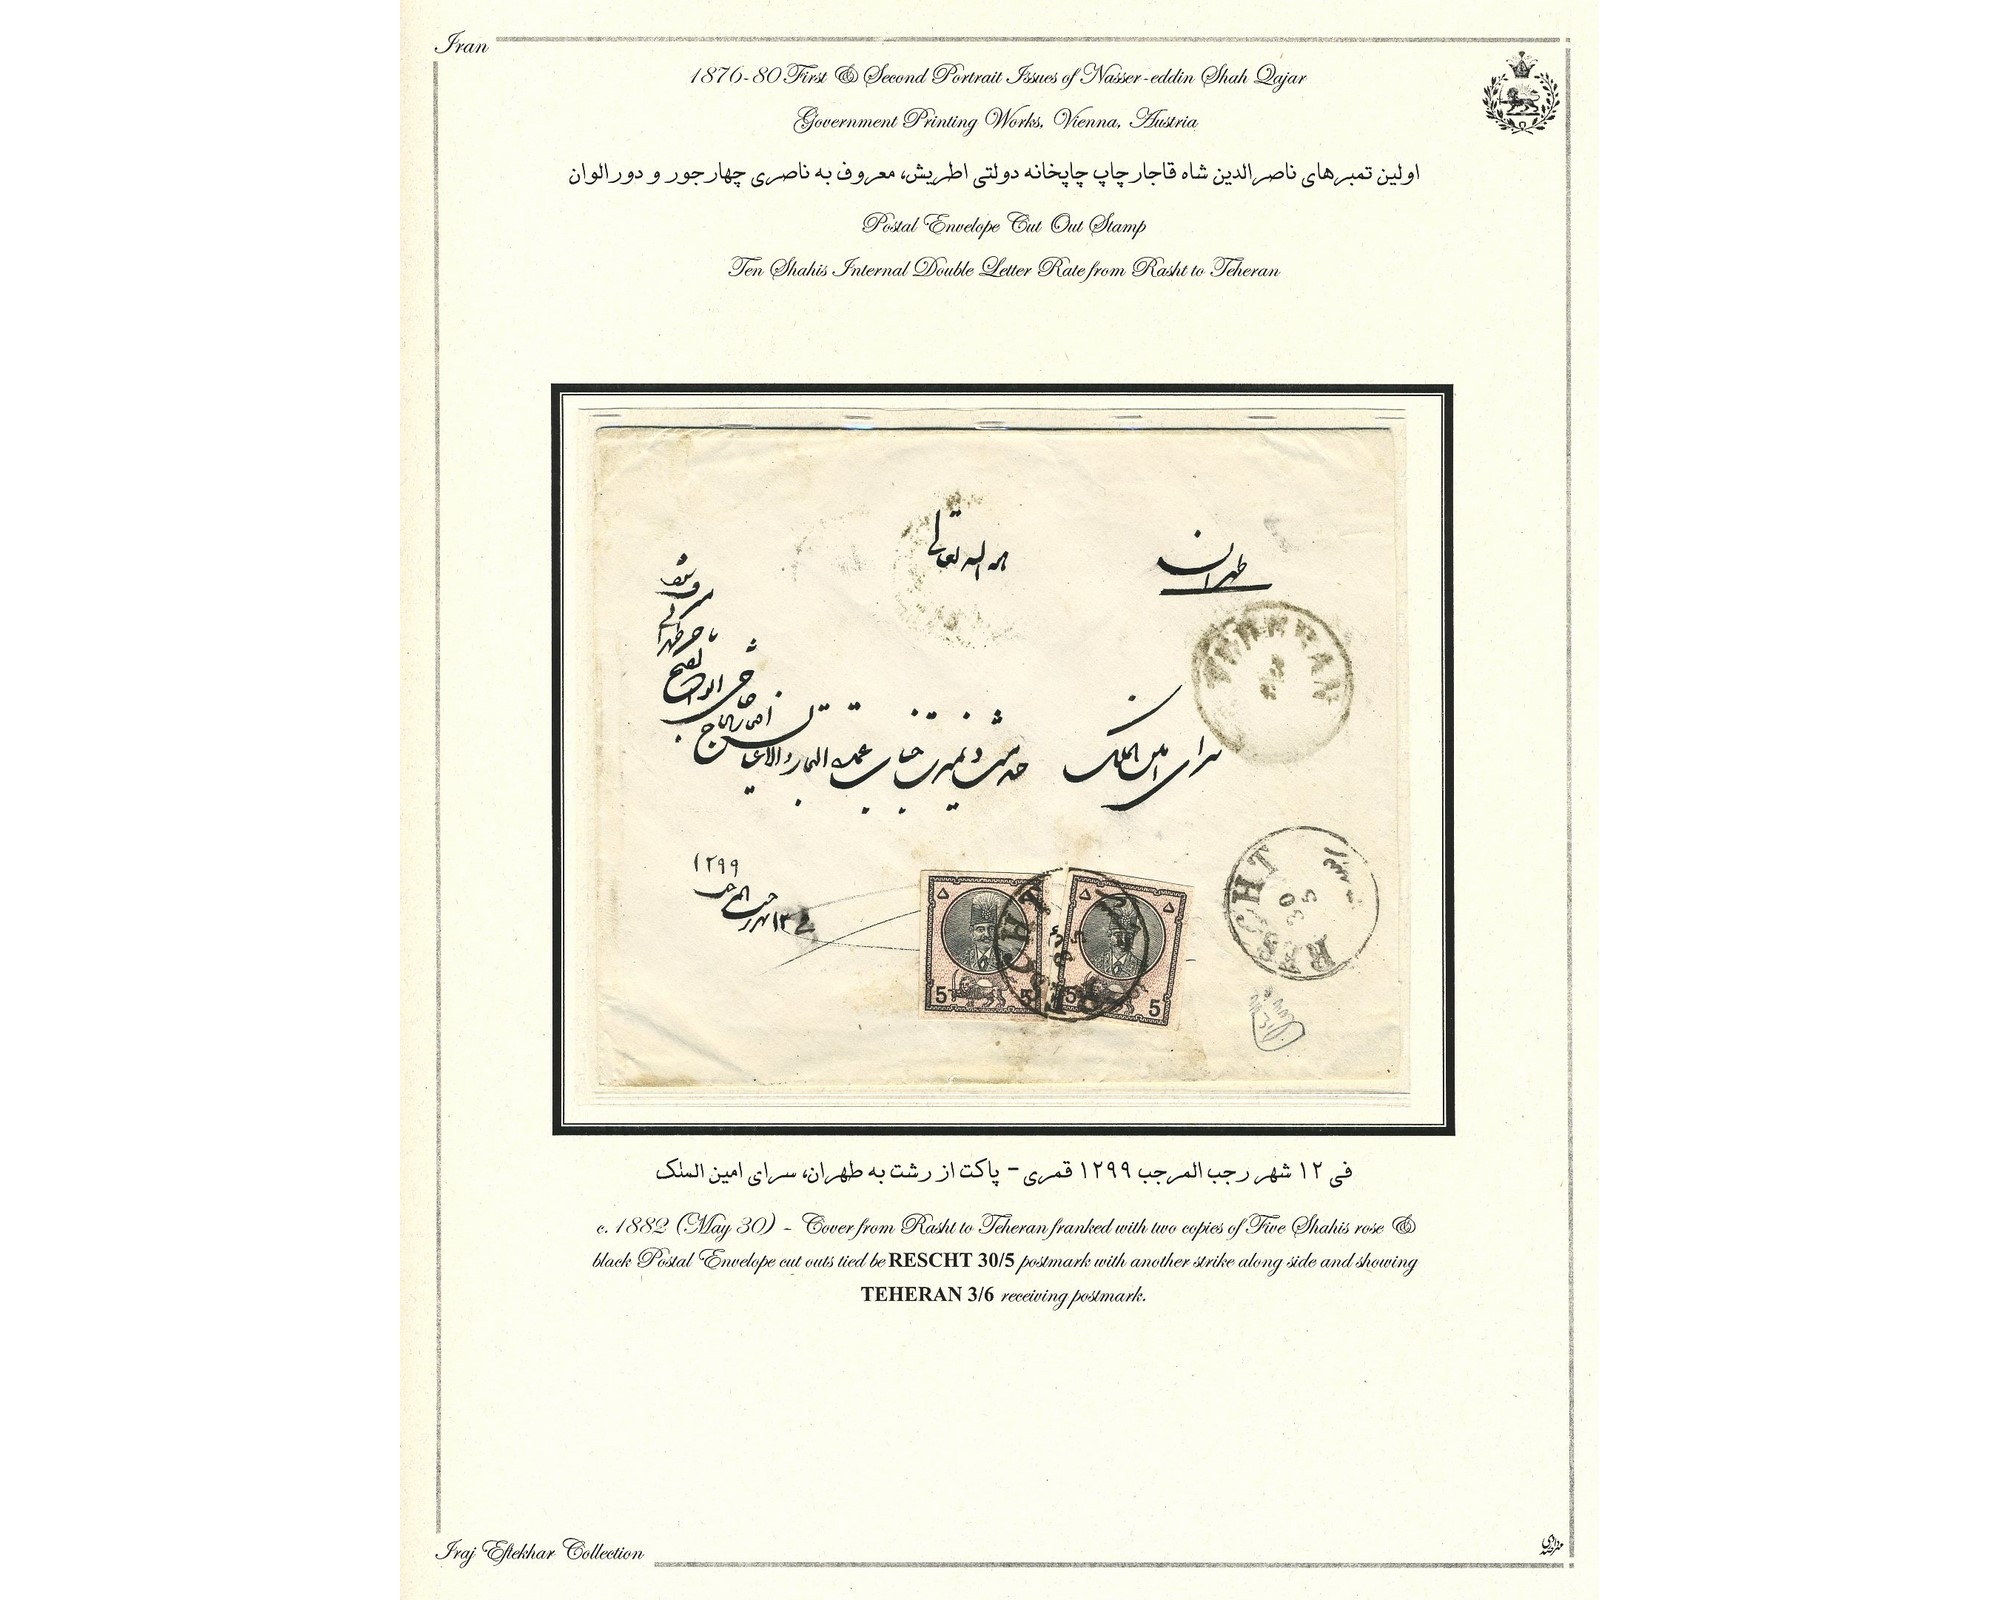 Iran
1876-80 First & Second Portrait Issues of Nasser-eddin Shah Qajar
Government Printing Works, Vienna, Austria
اولین تمبرهای ناصرالدین شاه قاجار چاپ چاپخانه دولتی اطریش، معروف به ناصری چهارجور و دورالوان
Postal Envelope Cut Out Stamp
Ten Shahis Internal Double Letter Rate from Rasht to Teheran
طهران
TEHERAN
سرای امین الملک
خدمت جناب
۱۲۹۹
RESCHT
30
5
۵ ۵
5 5
RESCHT
30
5
۵ ۵
5 5
فی ۱۲ شهر رجب المرجب ۱۲۹۹ قمری - پاکت از رشت به طهران، سرای امین الملک
c. 1882 (May 30) - Cover from Rasht to Teheran franked with two copies of Five Shahis rose &
black Postal Envelope cut outs tied be RESCHT 30/5 postmark with another strike along side and showing
TEHERAN 3/6 receiving postmark.
Iraj Eftekhar Collection